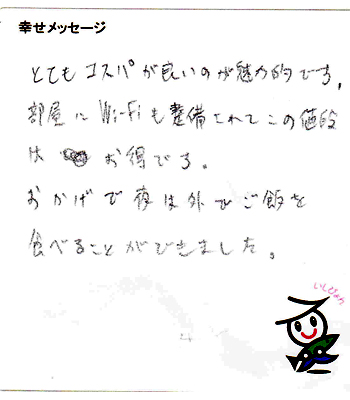 幸せメッセージ
とてもコスパが良いのが魅力的です。
部屋にWi-Fiも整備されてこの値段
は お得です。
おかげで夜は外でご飯を
食べることができました。